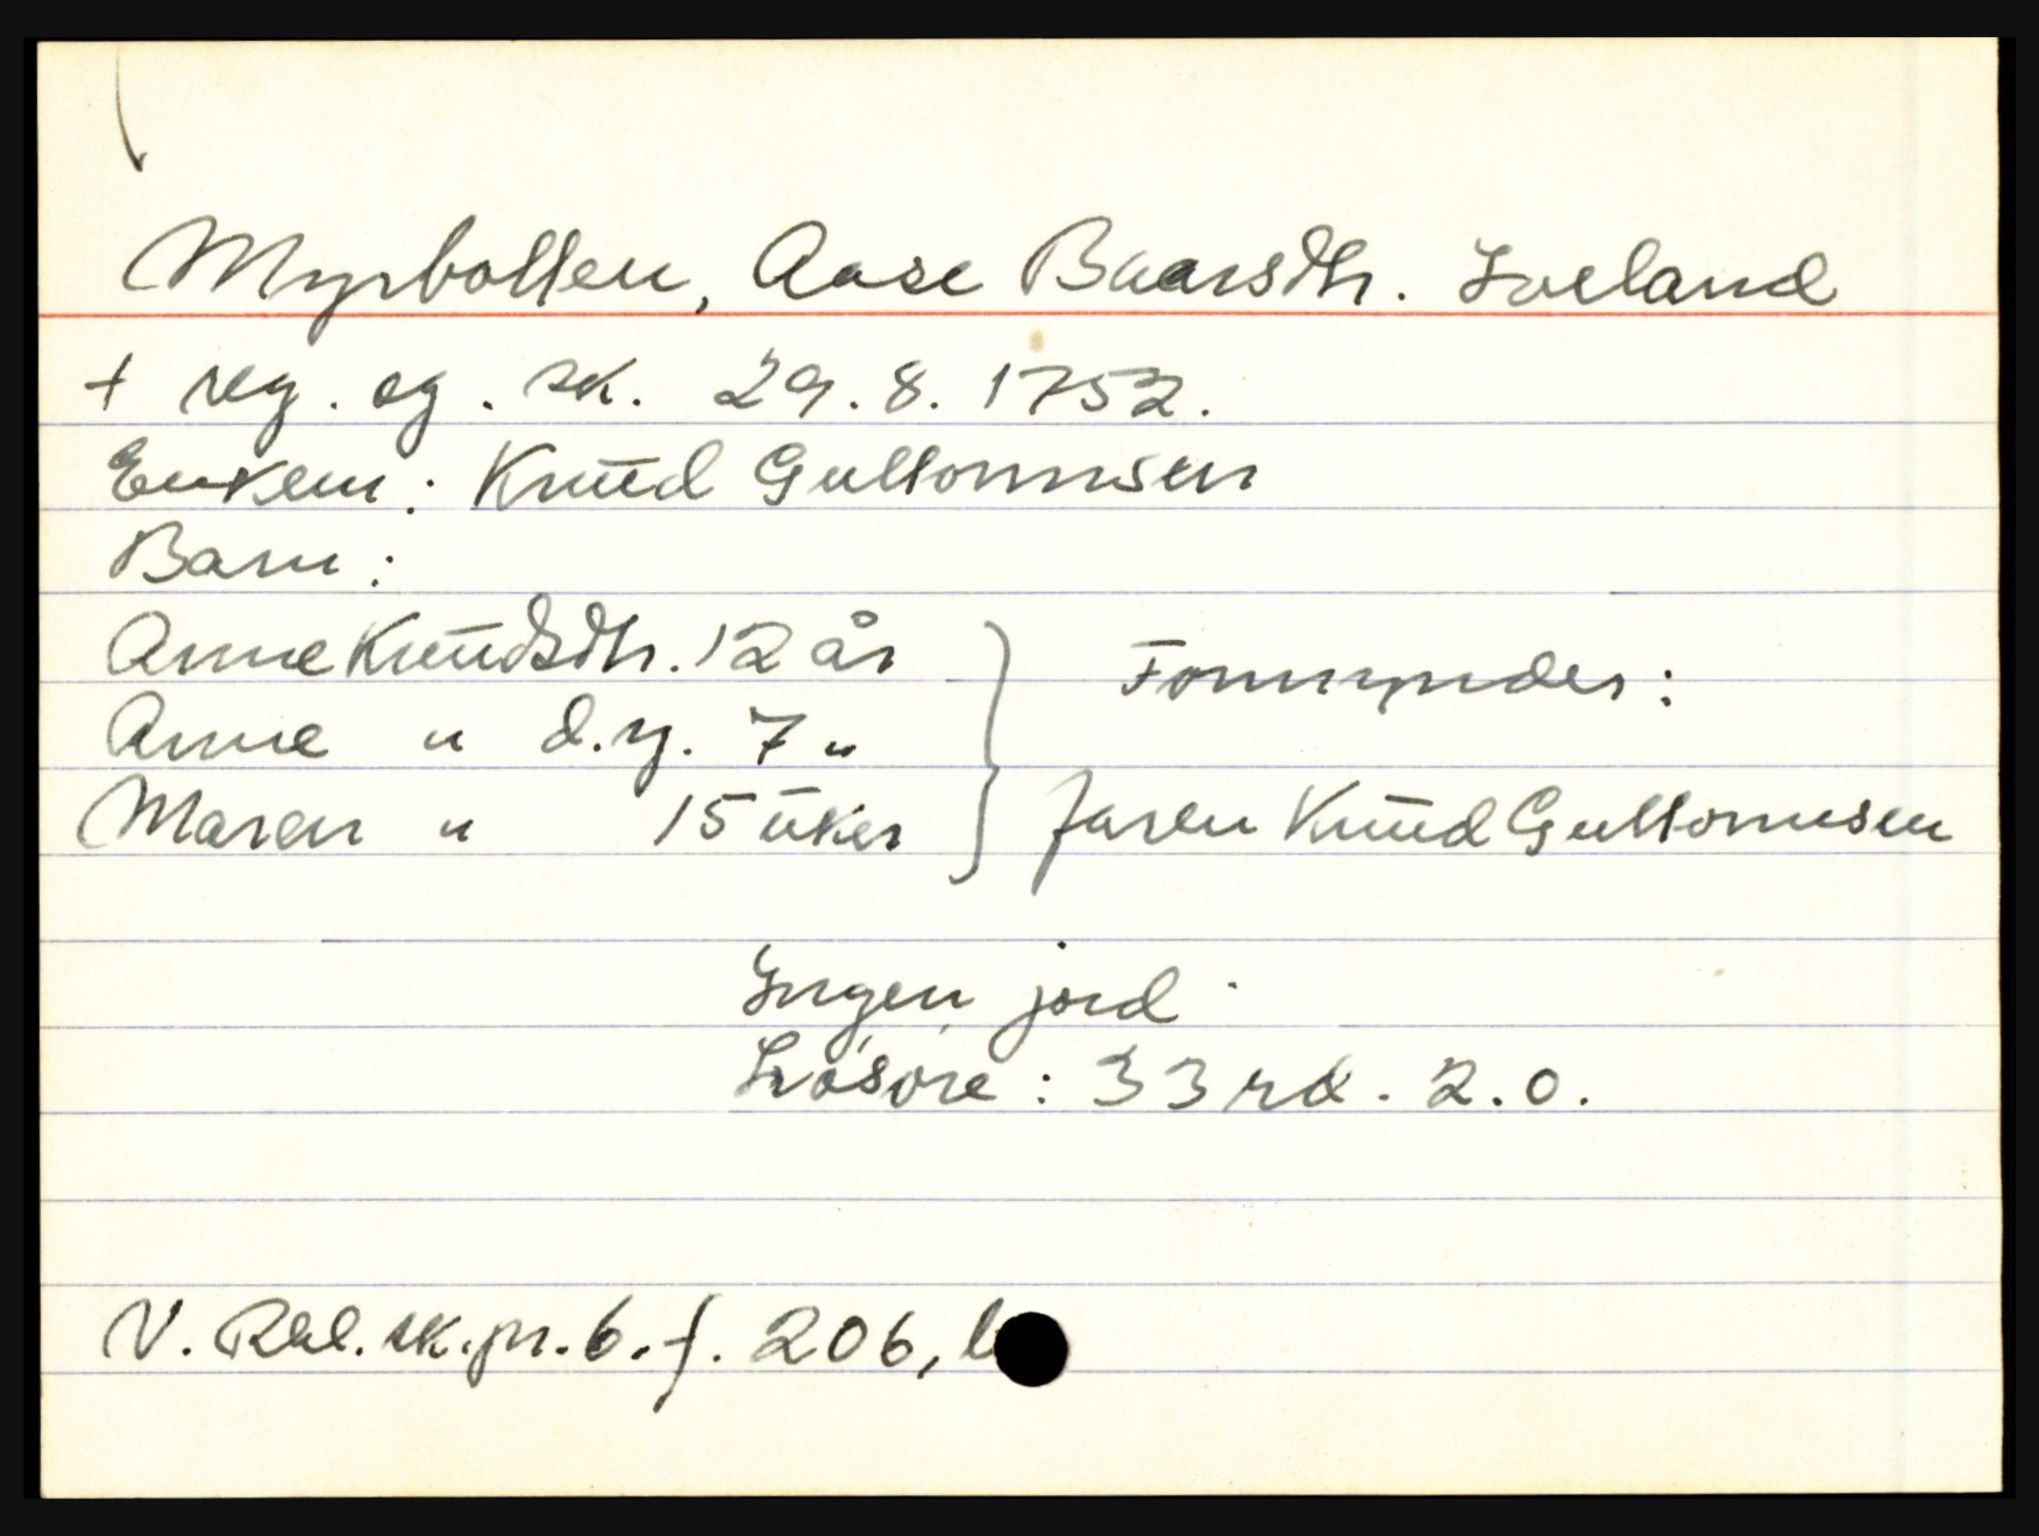 Myrbollen, Aase Baarsdtr. Iveland
† reg. og. sk. 29.8.1752.
Enkem: Knud Guttormsen
Barn:
Anne Knudsdtr. 12 år
Anne " d.y. 7 "
Maren " 15 uker
Formynder:
faren Knud Guttormsen
Ingen jord
Løsøre: 33 rd. 2.0.
V. Rbl. sk.pr. 6. f. 206, b